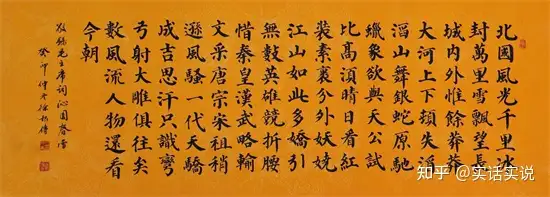 北國風光千里冰
封萬里雪飄望長
城内外惟餘莽莽
大河上下頓失滔
滔山舞銀蛇原馳
蠟象欲與天公試
比高須晴日看紅
裝素裹分外妖嬈
江山如此多嬌引
無數英雄競折腰
惜秦皇漢武略輸
文采唐宗宋祖稍
遜風騷一代天驕
成吉思汗只識彎
弓射大雕俱往矣
數風流人物還看
今朝
敬錄毛主席詞沁園春雪
癸卯仲冬
知乎 @实话实说